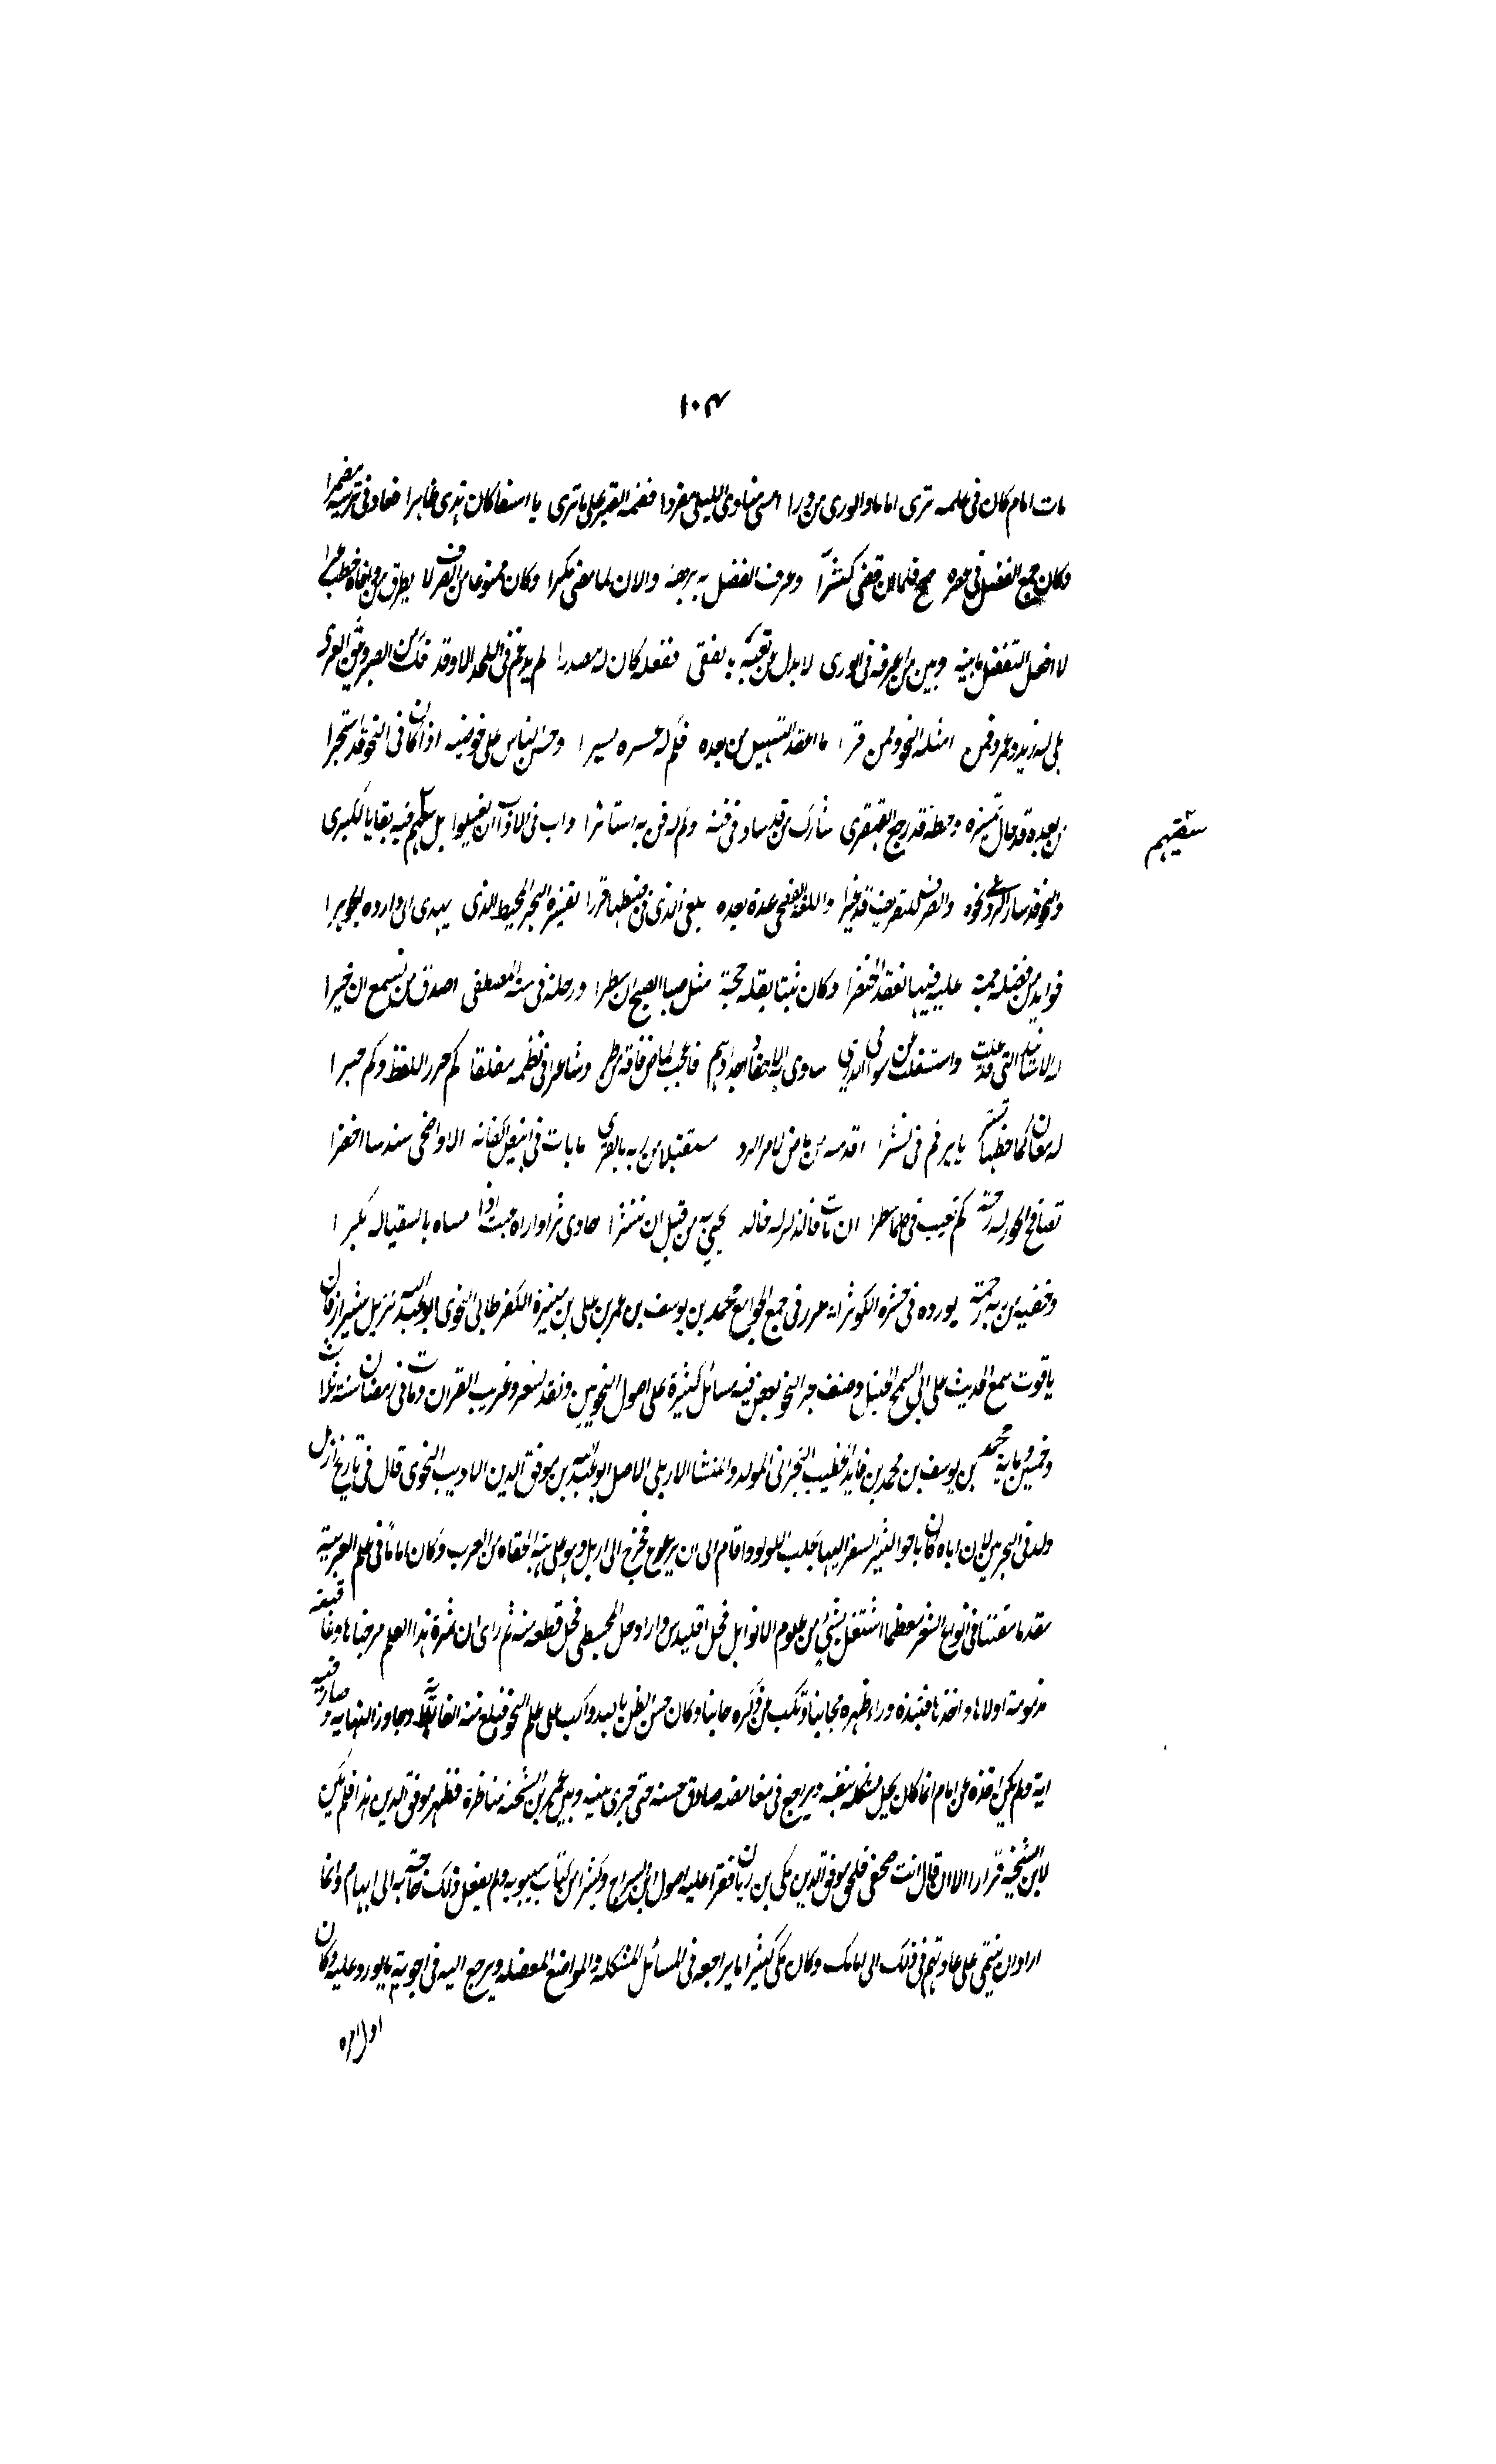 ١٠٣
مات امام كان فى علمه ترى اماما والورى من ورا امسى منادى للبلى مفردا فضمه القبر على ما ترى يا اسفا كان هدى ظاهرا فعاد فى تربته مضمرا
وكان جمع الفضل فى عصره صح فلما ان قضى كسرا وعرف الفضل به برهة والان لما مضى نكرا وكان ممنوعا من الصرف لا يطرق من وافاه خطب عرا
لا افعل التفضل ما بينه وبين من اعرفه فى الورى لا بدل عن نعته بالتقى ففعله كان له مصدرا لم يدغم فى اللحد الا وقد فك من الصبر وثيق العرى
بكى له زيد وعمرو فمن امثلة النحو وممن قرا ما اعقد التسهيل من بعده فكم له عسره يسرا وجسر الناس على خوضه اذ كان فى النحو قد استبحرا
من بعده قد حال تمييزه وحظه قد رجع القهقرى شارك من قد ساد فى فنه وكم له فن به استاثرا داب بنى الاداب ان يغسلوا بدمعهم فيه بقايا الكرى
سقيهم
والنحو قد سار الردى نحوه والصرف للتصريف قد غيرا واللغة الفصحى غدت بعده يلغى الذى فى ضبطها قررا تفسيره البحر المحيط الذى يهدى الى وارده الجوهرا
فوايد من فضله جمة عليه فيها نعقد الخنصرا وكان ثبتا نقله حجة مثل ضيا الصبح ان اسفرا ورحلة فى سنة المصطفى اصدق من تسمع ان خبرا
له الاسانيد التى قد علت واستفلت عنها سوامى الذرى ساوى بها الاحفاد اجدادهم فاعجب لماض فاته من طرا وشاعرا فى نظمه مفلقا كم حرر اللفظ وكم حبرا
له معان كلما خطها تستر ما يرقم فى تسترا افديه من ماض لامر الردى مستقبلا من ربه بالقرى ما بات فى ابيض اكفانه الا واضحى سندسا اخضرا
تصافح الحور له راحة كم تعبت فى كل ما سطرا ان مات فالذكر له خالد يحيى به من قبل ان ينشرا جاد ثرى واراه غيث اذا مساه بالسقيا له بكرا
وخصه من ربه رحمة يورده فى حشره الكوثرا محمد بن يوسف بن عمر بن على بن منيرة الكفرطابى النحوى ابو عبد الله نزيل شيراز قال
ياقوت سمع الحديث على ابى السمح الحنبلى وصنف بحر النحو نقض فيه مسائل كثيرة على اصول النحويين ونقد الشعر وغريب القران ومات فى رمضان سنة ثلاث
وخمسين وماية محمد بن يوسف بن محمد بن قايد الخطيب البحرانى المولد والمنشا الاربلى الاصل ابو عبد الله بن موفق الدين الاديب النحوى قال فى تاريخ اربل
ولد فى البحرين لان اباه كان تاجرا كثير السفر اليها يجلب اللولو واقام الى ان ترعرع فخرج الى اربل وهو على هيئة الجفاة من العرب وكان اماما فى علم العربية
مقدما متفننا فى انواع الشعر معظما اشتغل بشىء من علوم الاوايل فحل اقليدس واراد حل المجسطى فحل قطعة منه ثم راى ان ثمرة هذا العلم مر جناها وعاقبته
مذمومة اولاها واخراها فنبذه وراء ظهره مجانبا وتنكب عن ذكره جانبا وكان حسن الظن بالله واكب على علم النحو فبلغ منه الغاية وجاوز النهاية وصار فيه
اية ولم يكن اخذه عن امام انما كان يحل مشكله بنفسه ويراجع فى غامضه صادق حسه حتى جرى بينه وبين عمر بن الشحنة مناظرة فظهر موفق الدين هذا فلم يكن
لابن الشحنة قرار الا ان قال انت صحفى فلحق موفق الدين مكى بن ريان فقرا عليه اصول ابن السراج وكثيرا من كتاب سيبويه ولم يفعل ذلك حاجة به الى افهام وانما
اراد ان ينتمى على عادتهم فى ذلك الى امام وكان مكى كثيرا ما يراجعه فى المسائل المشكلة والمواضع المعضلة ويرجع اليه فى اجوبة ما يورد عليه وكان